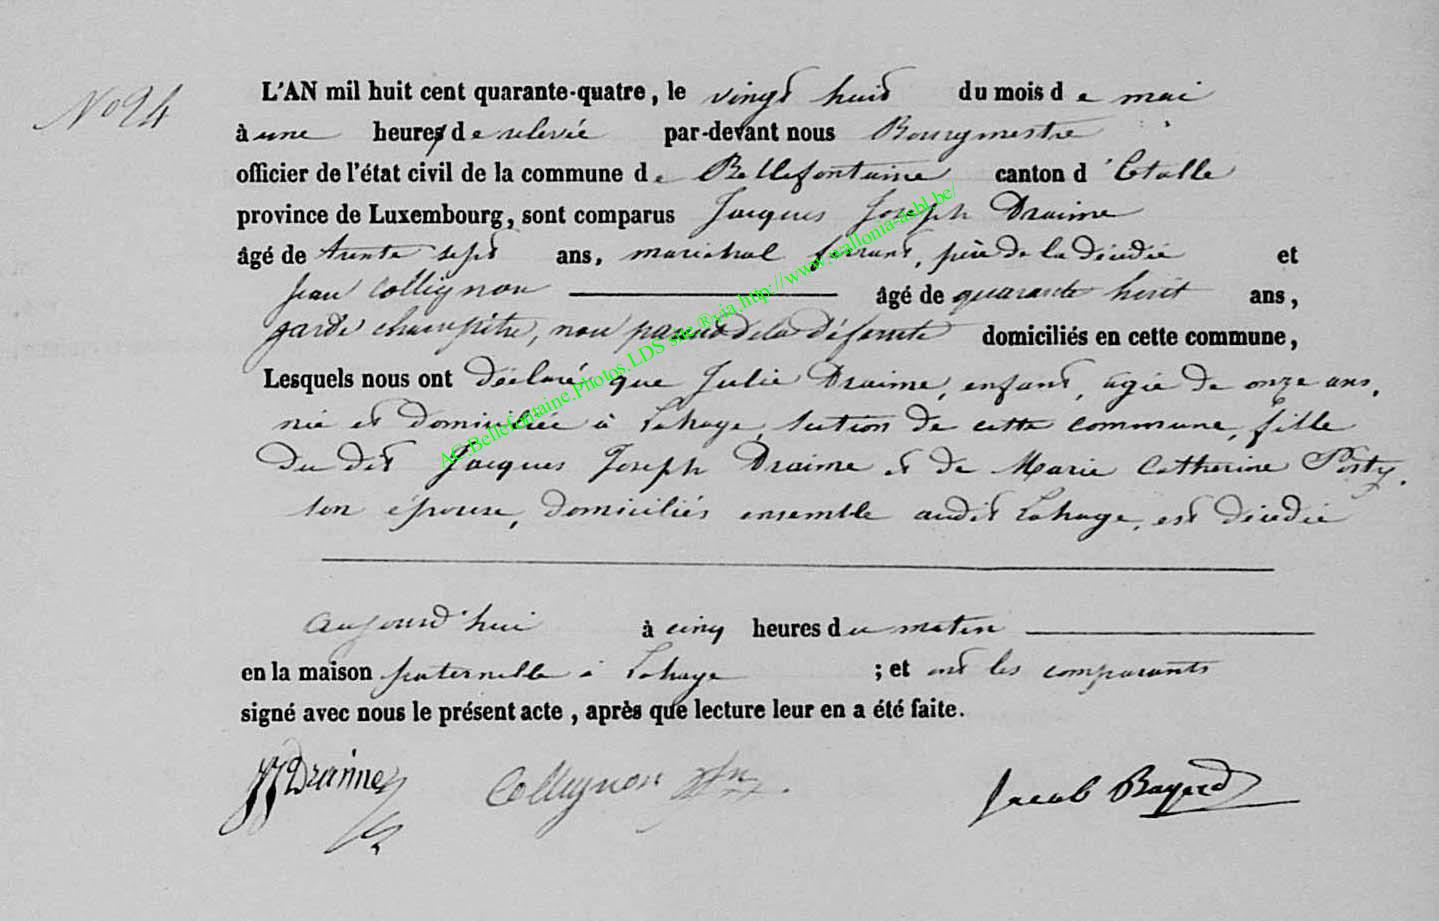 No 24
L'AN mil huit cent quarante-quatre, le vingt huit du mois de mai
à une heures de relevée par-devant nous Bourgmestre
officier de l'état civil de la commune de Bellefontaine canton d'Etalle
province de Luxembourg, sont comparus Jacques Joseph Draime
âgé de trente sept ans, maréchal ferrant, père de la décédée et
Jean Collignon âgé de quarante huit ans,
garde champêtre, non parent de la défunte domiciliés en cette commune,
Lesquels nous ont déclaré que Julie Draime, enfant, agée de onze ans,
née et domiciliée à Lahage, section de cette commune, fille
du dit Jacques Joseph Draime et de Marie Catherine
son épouse, domiciliés ensemble audit Lahage, est décédée
aujourd'hui à cinq heures du matin
en la maison paternelle à Lahage ; et ont les comparants
signé avec nous le présent acte, après que lecture leur en a été faite.
JJ Draime Collignon Jacob Bayard
AC.Bellefontaine.Photos.LDS site.®via.http://www.wallonia-asbl.be/